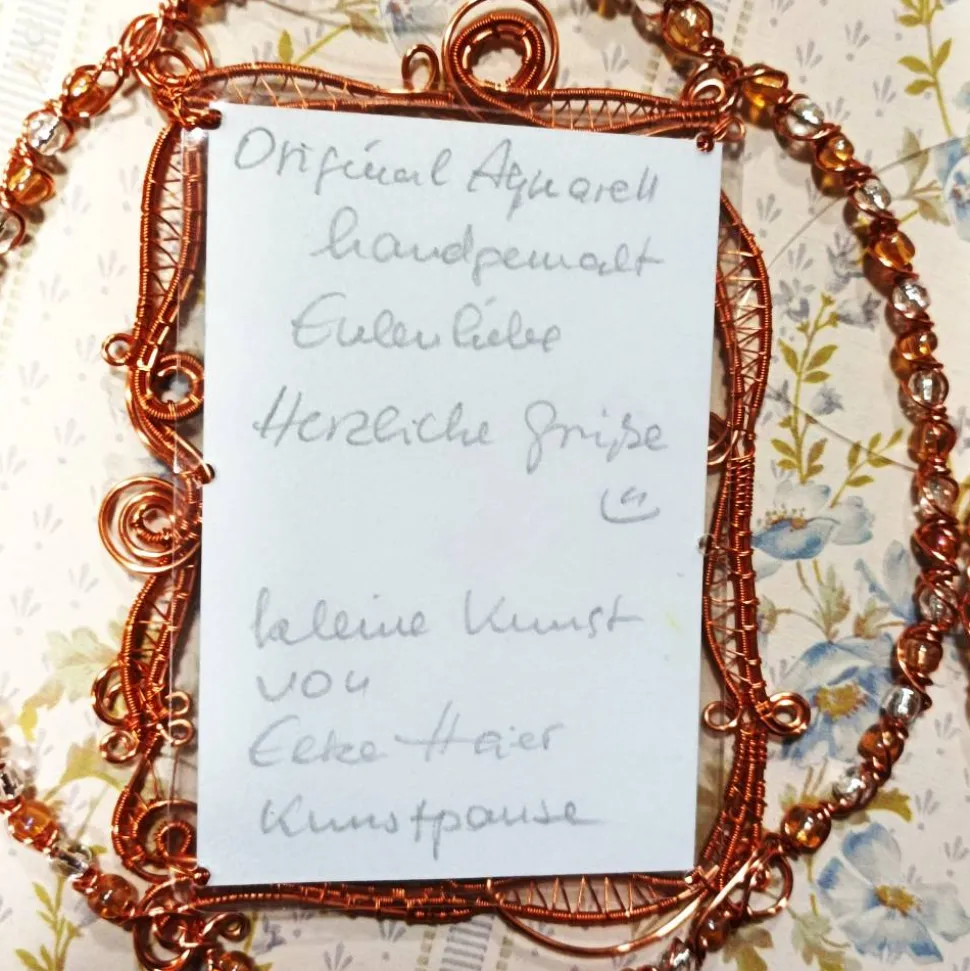 Original Aquarell
handgemalt
Eulenliebe
Herzliche Grüße
kleine Kunst
von
Haier
Kunstpause